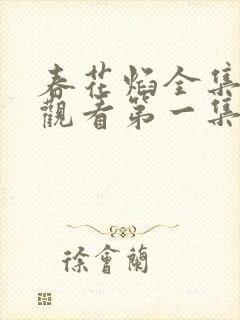 春花焰全集
觀看第一集
徐會蘭